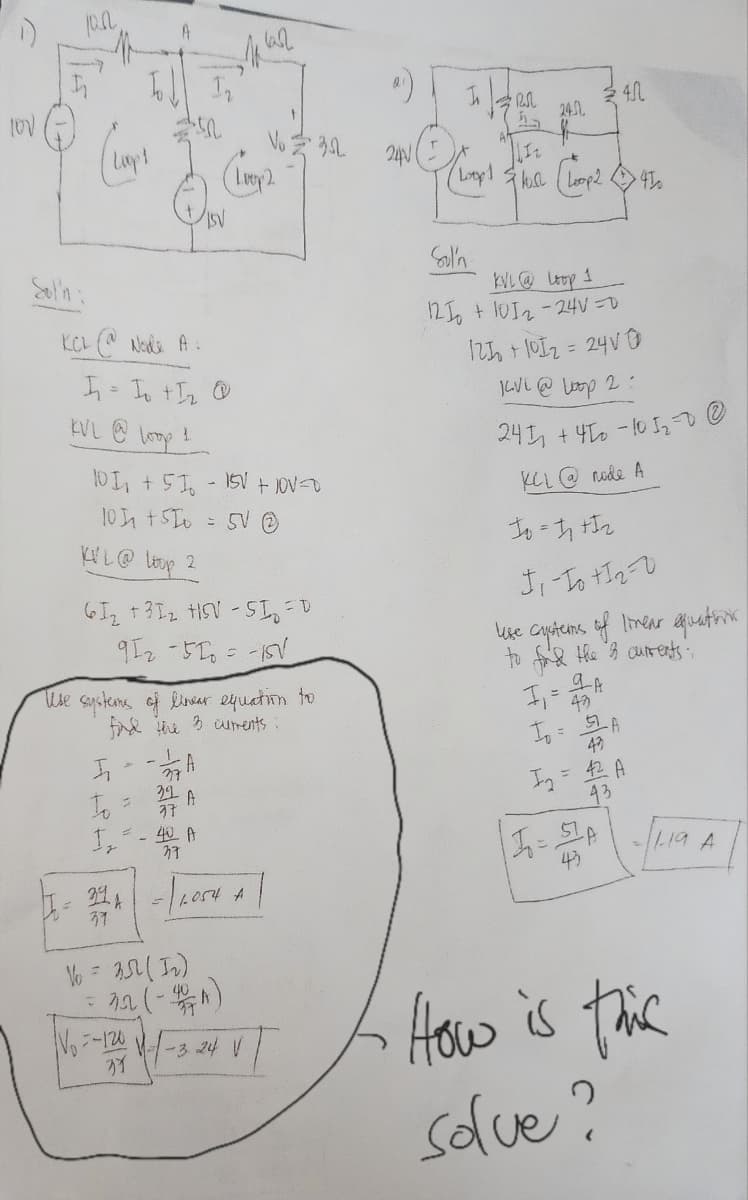 1)
10Ω
A
6Ω
I₁
I₀
I₂
5Ω
10V
V₀
3Ω
Loop1
Loop2
15V
Sol'n:
KCL @ Node A:
I₁ = I₀ + I₂ ①
KVL @ loop 1
10I₁ + 5I₀ - 15V + 10V=0
10I₁ + 5I₀ = 5V ②
KVL @ loop 2
6I₂ + 3I₂ +15V - 5I₀ = 0
9I₂ - 5I₀ = -15V
Use systems of linear equation to
find the 3 currents:
I₁ = -1/37 A
I₀ = 39/37 A
I₂ = -40/37 A
I₀ = 39/37 A = 1.054 A
V₀ = 3Ω(I₂)
= 3Ω(-40/37 A)
V₀ = -120/37 V = -3.24 V
2.)
I₀
12Ω
4Ω
I₁
24Ω
A
I₂
24V
Loop1
10Ω
Loop2
4I₀
Sol'n
KVL @ loop 1
12I₀ + 10I₂ - 24V = 0
12I₀ + 10I₂ = 24V ①
KVL @ loop 2:
24I₁ + 4I₀ - 10I₂ = 0 ②
KCL @ node A
I₀ = I₁ + I₂
I₁ - I₀ + I₂ = 0
Use systems of linear equations
to find the 3 currents:
I₁ = 9/43 A
I₀ = 51/43 A
I₂ = 42/43 A
I₀ = 51/43 A = 1.19 A
How is this
solve?